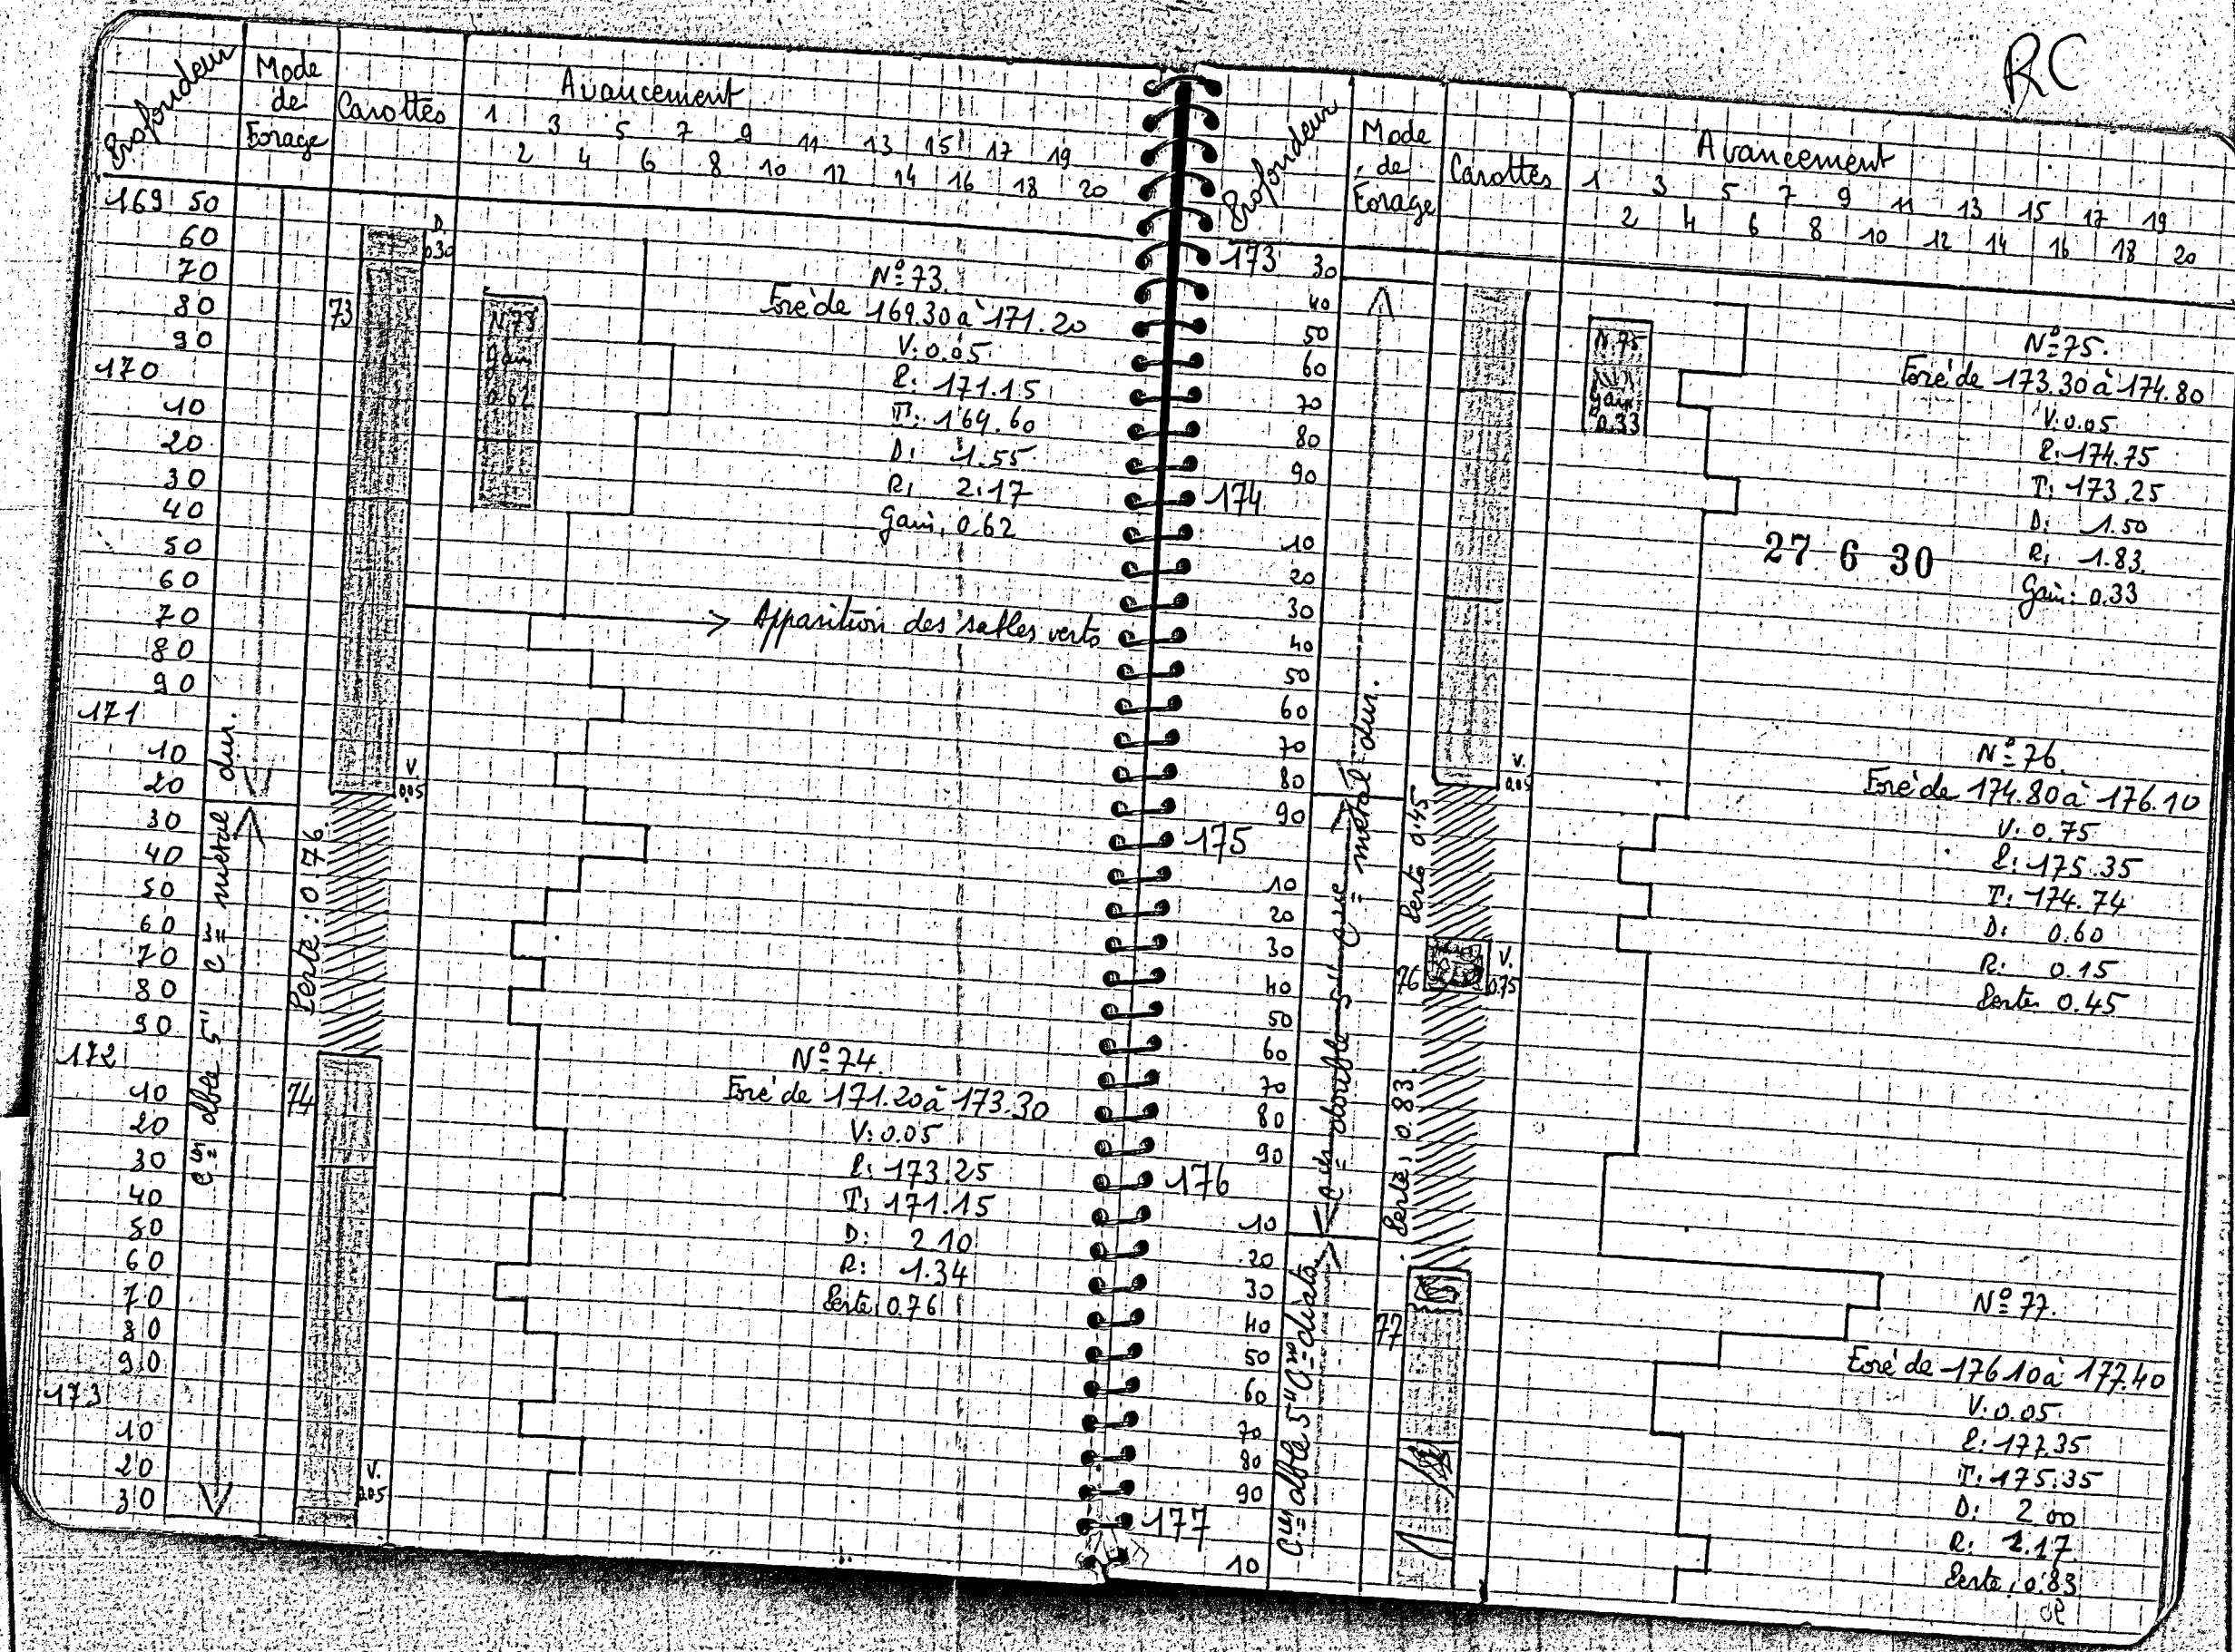 RC
Profondeur
Mode
de
Forage
Carottes
Avancement
1 3 5 7 9 11 13 15 17 19
2 4 6 8 10 12 14 16 18 20
169 50
60
70
80
90
170
10
20
30
40
50
60
70
80
90
171
10
20
30
40
50
60
70
80
90
172
10
20
30
40
50
60
70
80
90
173
10
20
30
Cer dble 5" Cne métal dur.
73
Perte: 0.76
74
D.
0.30
V
0.05
V.
0.05
N° 73
gain
0.62
N° 73.
Foré de 169.30 à 171.20
V: 0.05
R: 171.15
T: 169.60
D: 1.55
R: 2.17
Gain: 0.62
Apparition des sables verts
N° 74
Foré de 171.20 à 173.30
V: 0.05
R: 173.25
T: 171.15
D: 2.10
R: 1.34
Perte: 0.76
Profondeur
Mode
de
Forage
Carottes
Avancement
1 3 5 7 9 11 13 15 17 19
2 4 6 8 10 12 14 16 18 20
173 30
40
50
60
70
80
90
174
10
20
30
40
50
60
70
80
90
175
10
20
30
40
50
60
70
80
90
176
10
20
30
40
50
60
70
80
90
177
10
Cer double 5" Cne métal dur.
Cer dble 5" Cne
Perte 0.45
76
Perte: 0.83.
77
V.
0.05
V.
0.75
N° 75
gain
0.33
N° 75.
Foré de 173.30 à 174.80
V: 0.05
R: 174.75
T: 173.25
D: 1.50
R: 1.83.
Gain: 0.33
27 6 30
N° 76.
Foré de 174.80 à 176.10
V: 0.75
R: 175.35
T: 174.74
D: 0.60
R: 0.15
Perte 0.45
N° 77.
Foré de 176.10 à 177.40
V: 0.05
R: 177.35
T: 175.35
D: 2.00
R: 1.17
Perte: 0.83